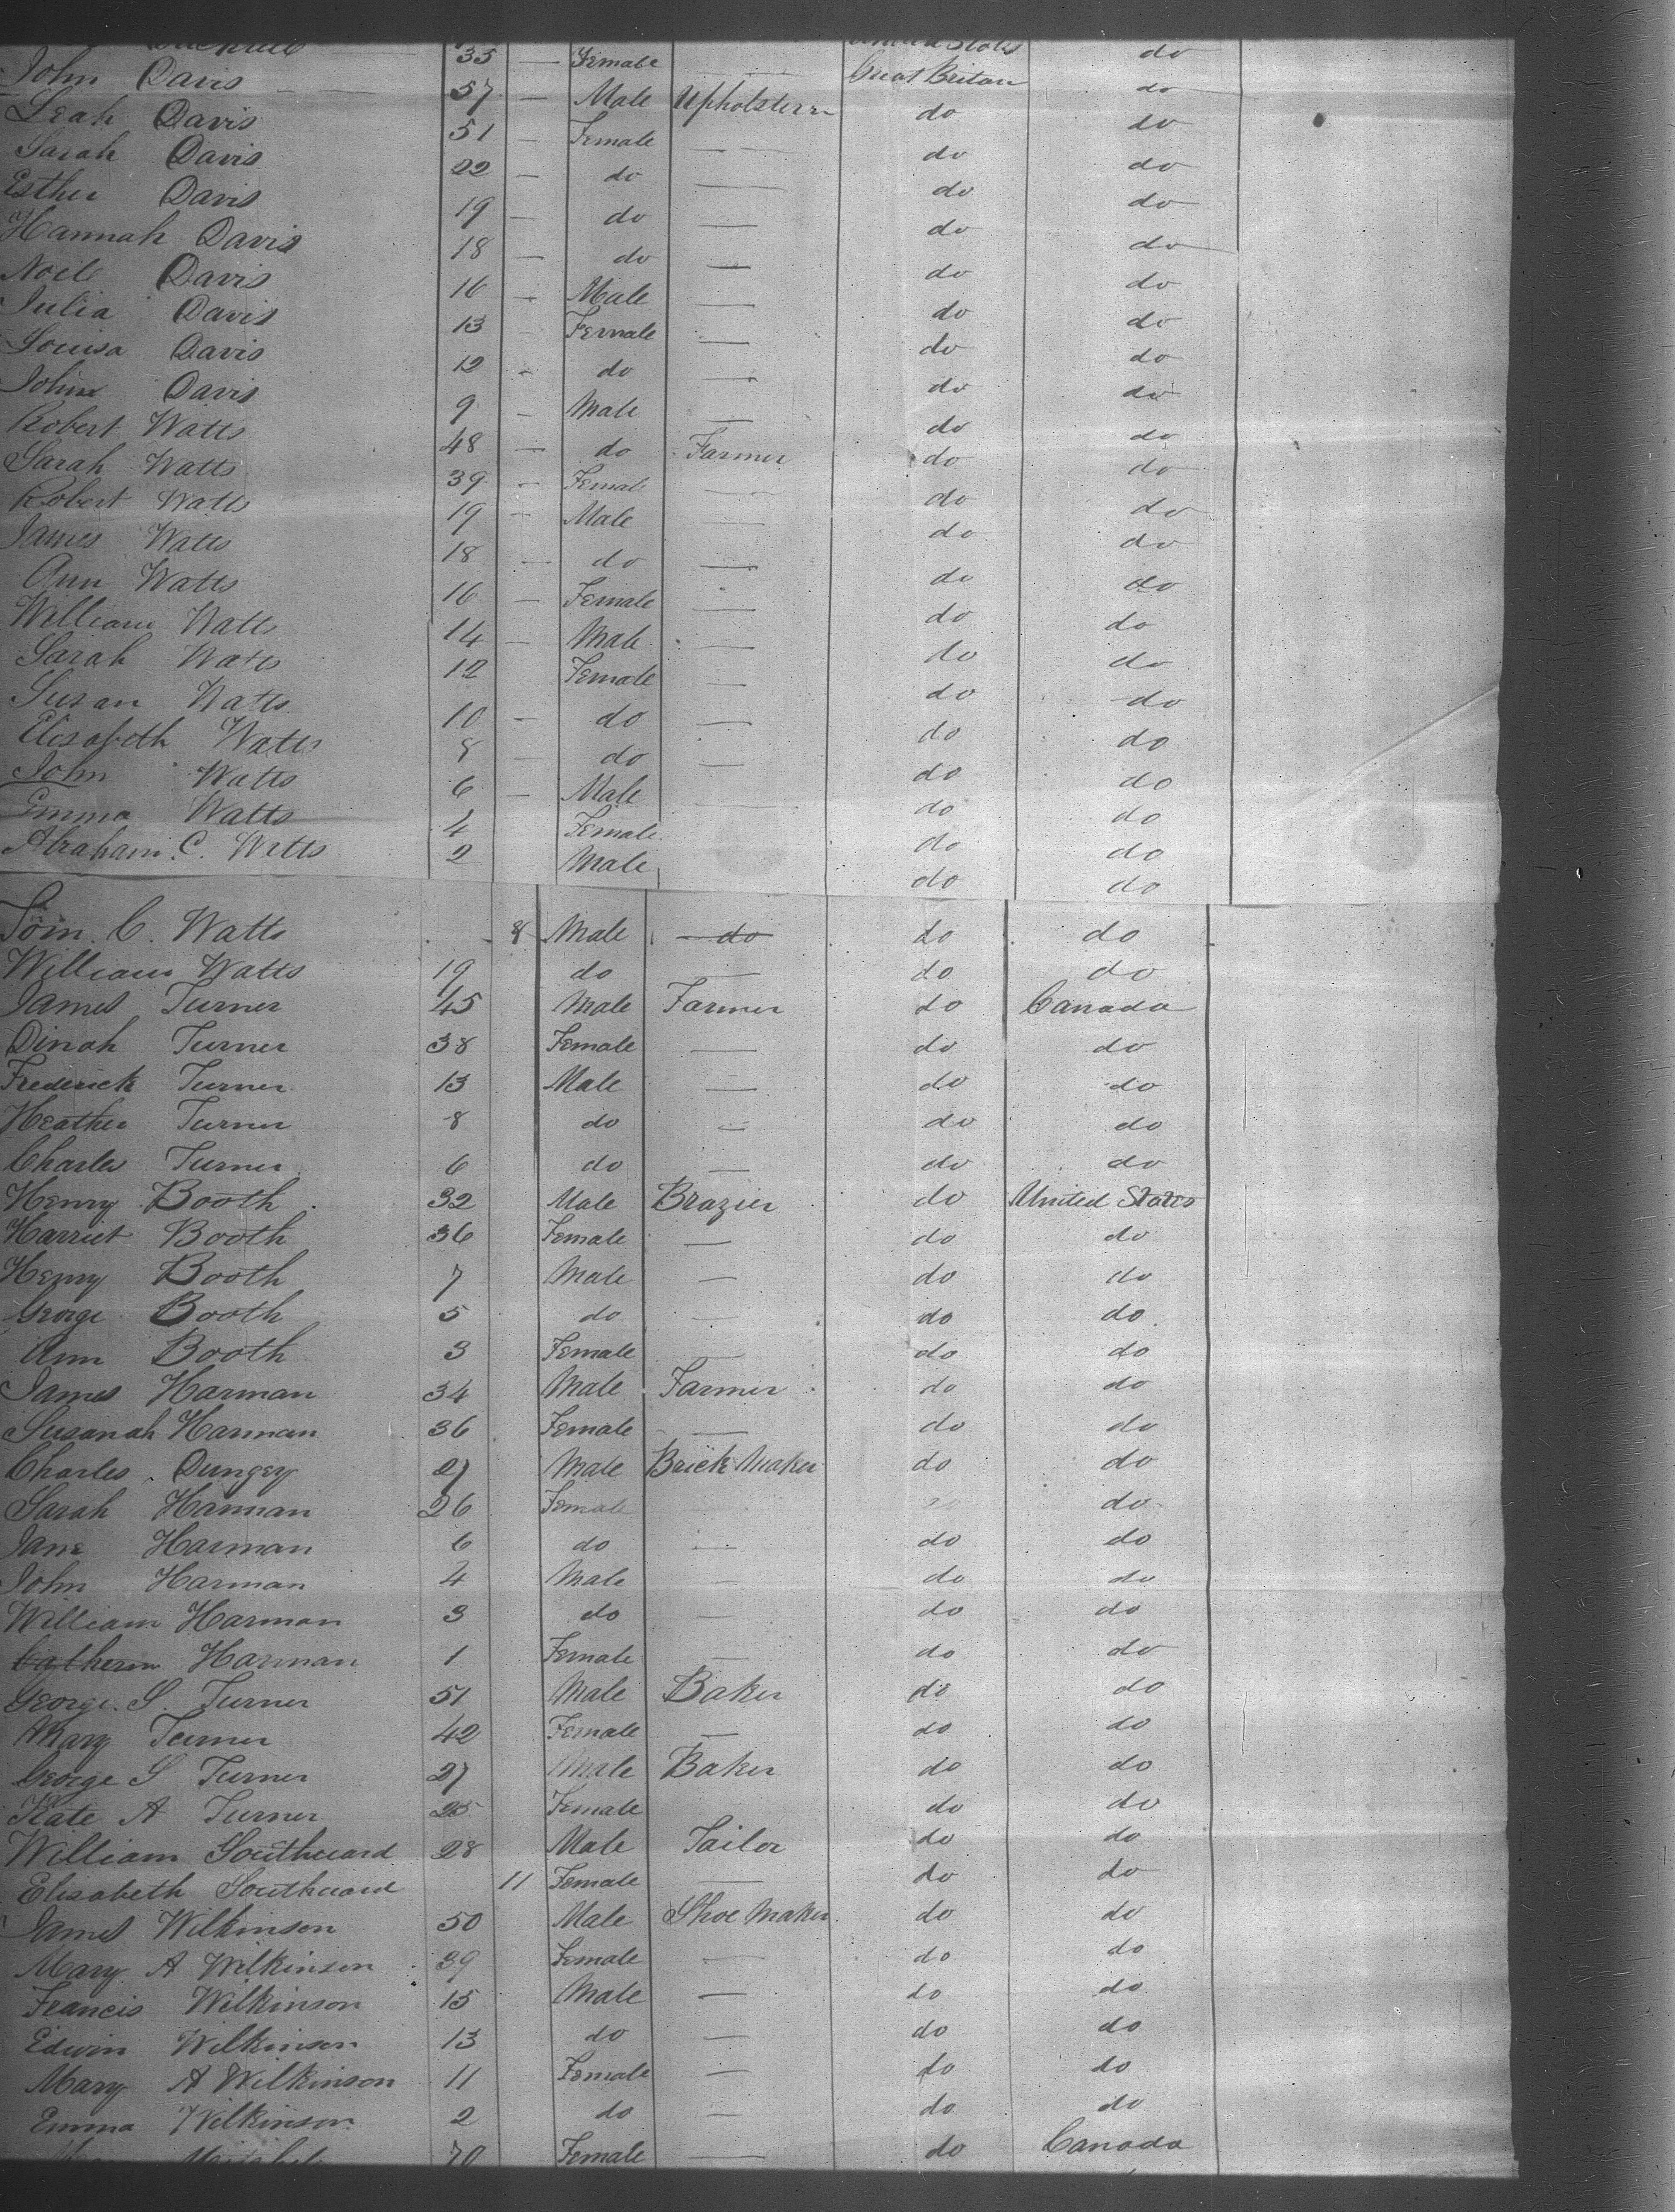 35 — Female — United States do
John Davis 57 — Male Upholsterer Great Britain do
Leah Davis 51 — Female — do do
Sarah Davis 22 — do — do do
Esther Davis 19 — do — do do
Hannah Davis 18 — do — do do
Noile Davis 16 — Male — do do
Julia Davis 13 Female — do do
Louisa Davis 12 - do — do do
John Davis 9 - Male — do do
Robert Watts 48 — do Farmer do do
Sarah Watts 39 - Female — do do
Robert Watts 19 - Male — do do
James Watts 18 — do — do do
Ann Watts 16 — Female — do do
William Watts 14 — Male — do do
Sarah Watts 12 Female — do do
Susan Watts 10 — do — do do
Elisabeth Watts 8 — do — do do
John Watts 6 — Male — do do
Emma Watts 4 Female do do
Abraham C. Watts 2 Male do do
C. Watts 8 Male do do do
William Watts 19 do — do do
James Turner 45 Male Farmer do Canada
Dinah Turner 38 Female — do do
Frederick Turner 13 Male — do do
Heather Turner 8 do — do do
Charles Turner 6 do — do do
Henry Booth 32 Male Brazier do United States
Harriet Booth 36 Female — do do
Henry Booth 7 Male — do do
George Booth 5 do — do do
Ann Booth 3 Female — do do
James Harman 34 Male Farmer do do
Susanah Harman 36 Female — do do
Charles Dungey 27 Male Brick Maker do do
Sarah Harman 26 Female do do
Jane Harman 6 do — do do
John Harman 4 Male — do do
William Harman 3 do — do do
Catherin Harman 1 Female — do do
George S. Turner 51 Male Baker do do
Mary Turner 42 Female — do do
George S Turner 27 Male Baker do do
Kate A Turner 25 Female do do
William Southward 28 Male Tailor do do
Elisabeth Southward 11 Female — do do
James Wilkinson 50 Male Shoe Maker do do
Mary A Wilkinson 39 Female — do do
Francis Wilkinson 15 Male — do do
Edwin Wilkinson 13 do — do do
Mary A Wilkinson 11 Female — do do
Emma Wilkinson 2 do — do do
70 Female — do Canada